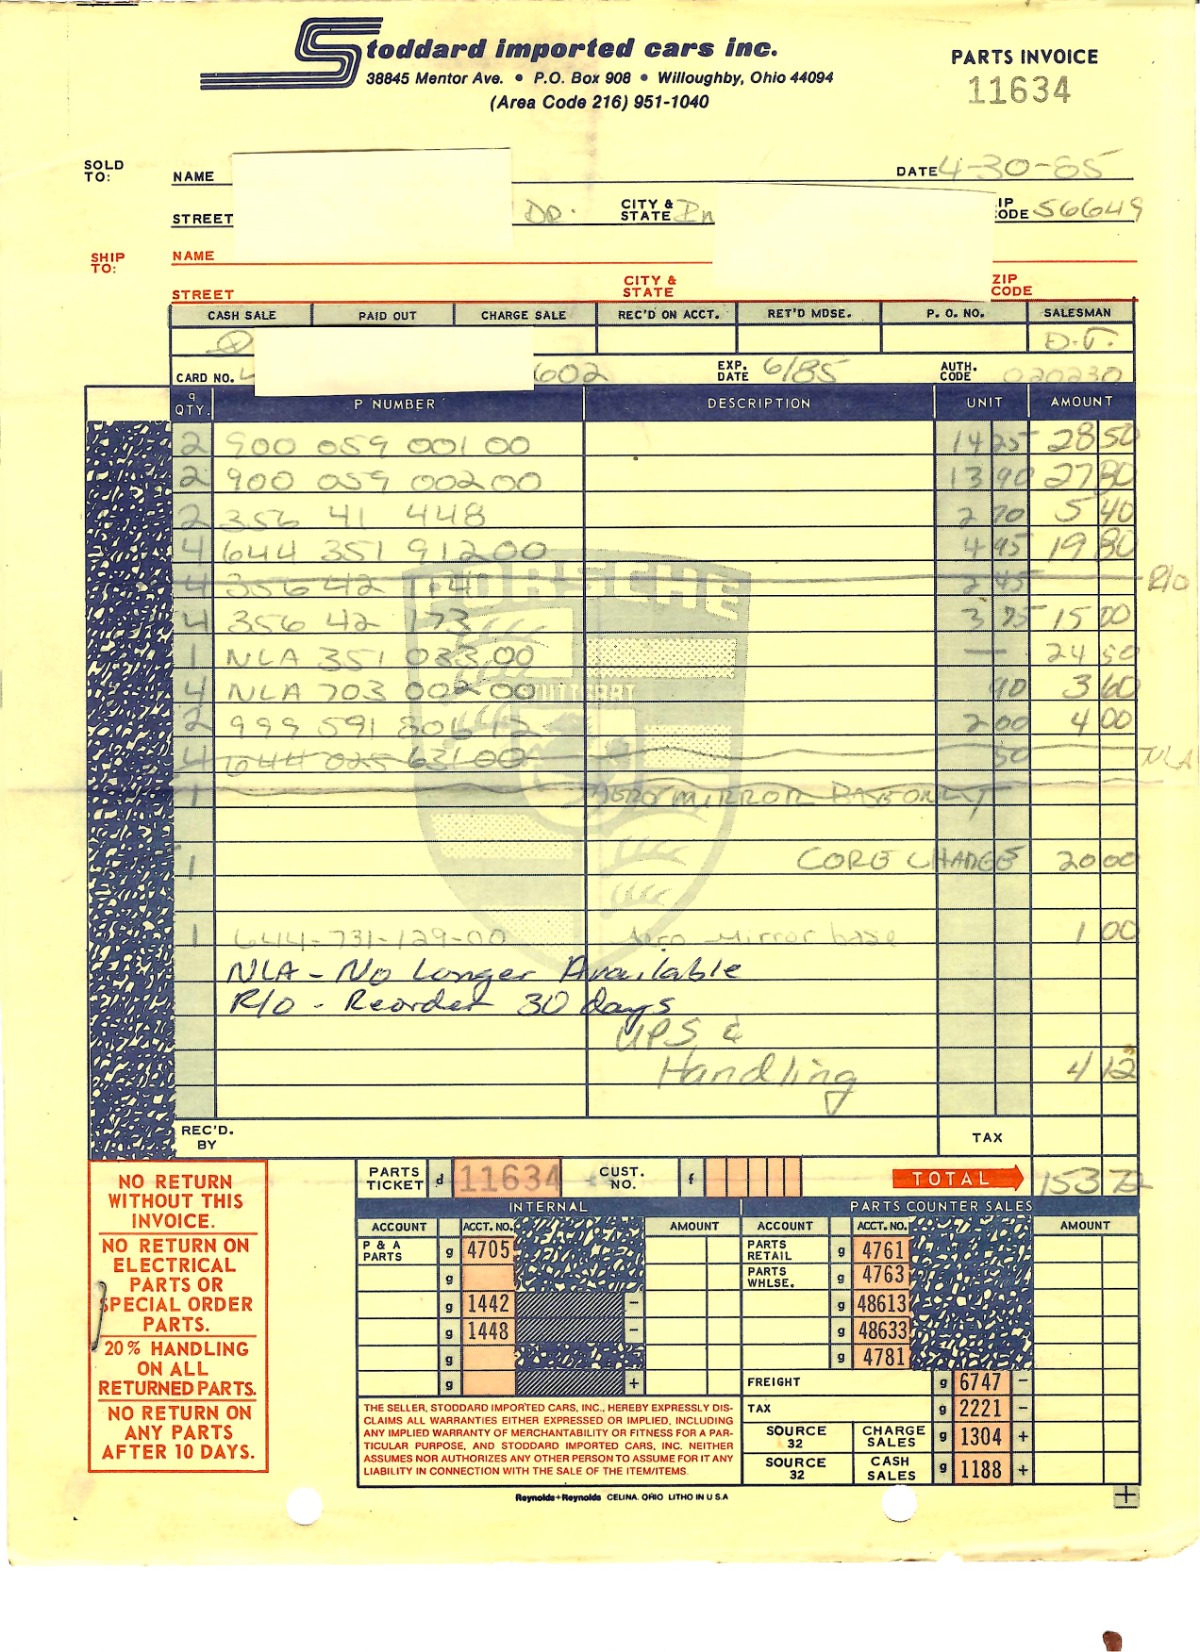 Stoddard imported cars inc.
38845 Mentor Ave. • P.O. Box 908 • Willoughby, Ohio 44094
(Area Code 216) 951-1040
PARTS INVOICE
11634
SOLD TO:
NAME
DATE 4-30-85
STREET DR. CITY & STATE In ZIP CODE 56649
SHIP TO:
NAME
STREET CITY & STATE ZIP CODE
CASH SALE PAID OUT CHARGE SALE REC'D ON ACCT. RET'D MDSE. P. O. NO. SALESMAN
D.T.
CARD NO. 602 EXP. DATE 6/85 AUTH. CODE 020230
q QTY. P NUMBER DESCRIPTION UNIT AMOUNT
2 900 059 001 00 14 25 28 50
2 900 059 002 00 13 90 27 80
2 356 41 448 2 70 5 40
4 644 351 912 00 4 95 19 80
4 356 42 141 2 45 R/O
4 356 42 173 3 75 15 00
1 NLA 351 033 00 — 24 50
4 NLA 703 002 00 90 3 60
2 999 591 806 12 2 00 4 00
4 644 025 631 00 50 NLA
1 AERO MIRROR BASE ONLY
1 CORE CHARGE 20 00
1 644-731-129-00 Aero mirror base 1 00
NLA - No Longer Available
R/O - Reorder 30 days
UPS &
Handling 4 12
REC'D. BY TAX
PARTS TICKET d 11634 CUST. NO. f TOTAL 153 72
INTERNAL PARTS COUNTER SALES
ACCOUNT ACCT. NO. AMOUNT ACCOUNT ACCT. NO. AMOUNT
P & A PARTS g 4705 PARTS RETAIL g 4761
g PARTS WHLSE. g 4763
g 1442 − g 48613
g 1448 − g 48633
g g 4781
g + FREIGHT g 6747 −
TAX g 2221 −
SOURCE 32 CHARGE SALES g 1304 +
SOURCE 32 CASH SALES g 1188 +
NO RETURN
WITHOUT THIS
INVOICE.
NO RETURN ON
ELECTRICAL
PARTS OR
SPECIAL ORDER
PARTS.
20% HANDLING
ON ALL
RETURNED PARTS.
NO RETURN ON
ANY PARTS
AFTER 10 DAYS.
THE SELLER, STODDARD IMPORTED CARS, INC., HEREBY EXPRESSLY DIS-
CLAIMS ALL WARRANTIES EITHER EXPRESSED OR IMPLIED, INCLUDING
ANY IMPLIED WARRANTY OF MERCHANTABILITY OR FITNESS FOR A PAR-
TICULAR PURPOSE, AND STODDARD IMPORTED CARS, INC. NEITHER
ASSUMES NOR AUTHORIZES ANY OTHER PERSON TO ASSUME FOR IT ANY
LIABILITY IN CONNECTION WITH THE SALE OF THE ITEM/ITEMS.
Reynolds+Reynolds CELINA, OHIO LITHO IN U S A
+
PORSCHE
STUTTGART